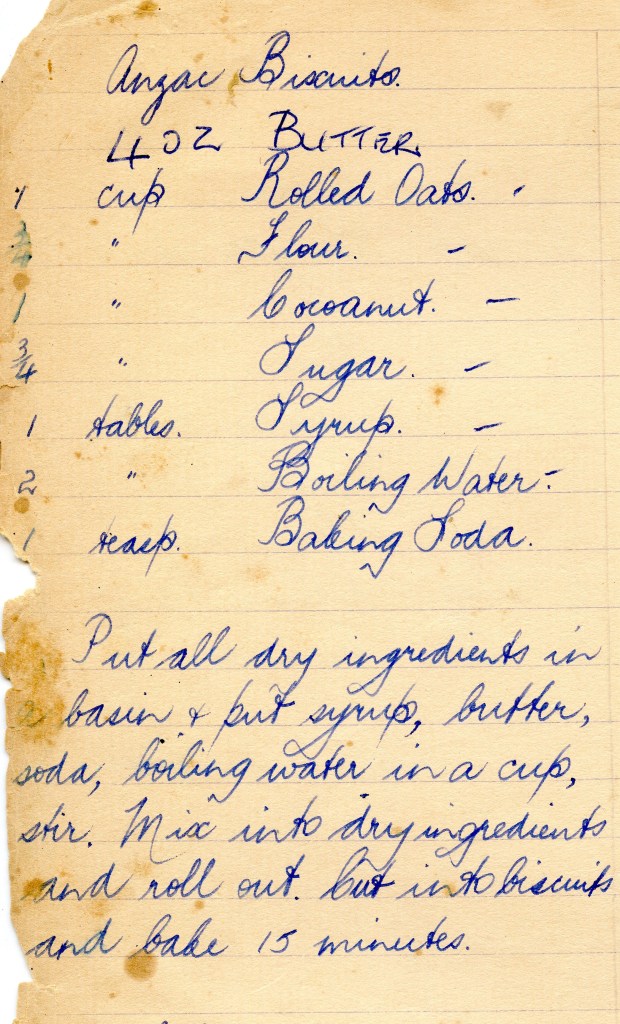 Anzac Biscuits.
4 OZ BUTTER
1 cup Rolled Oats. -
3/4 " Flour. -
1 " Cocoanut. -
3/4 " Sugar. -
1 tables. Syrup. -
2 " Boiling Water -
1 teasp. Baking Soda.
Put all dry ingredients in
a basin & put syrup, butter,
soda, boiling water in a cup,
stir. Mix into dry ingredients
and roll out. Cut into biscuits
and bake 15 minutes.